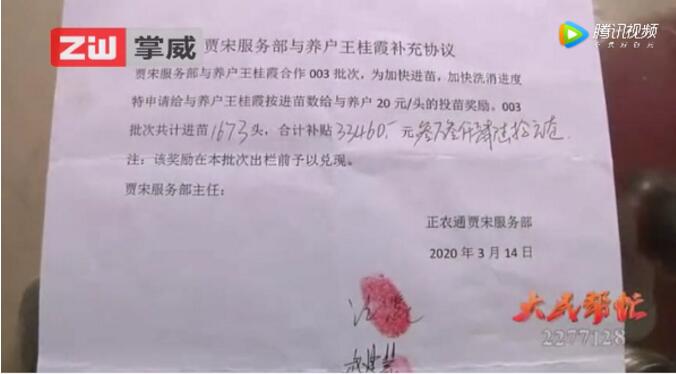 ZW 掌威
腾讯视频
贾宋服务部与养户王桂霞补充协议
贾宋服务部与养户王桂霞合作 003 批次，为加快进苗，加快洗消进度
特申请给与养户王桂霞按进苗数给与养户 20 元/头的投苗奖励。003
批次共计进苗 1673 头，合计补贴 33460.- 元
注：该奖励在本批次出栏前予以兑现。
贾宋服务部主任：
正农通贾宋服务部
2020 年 3 月 14 日
大民帮忙
2277128